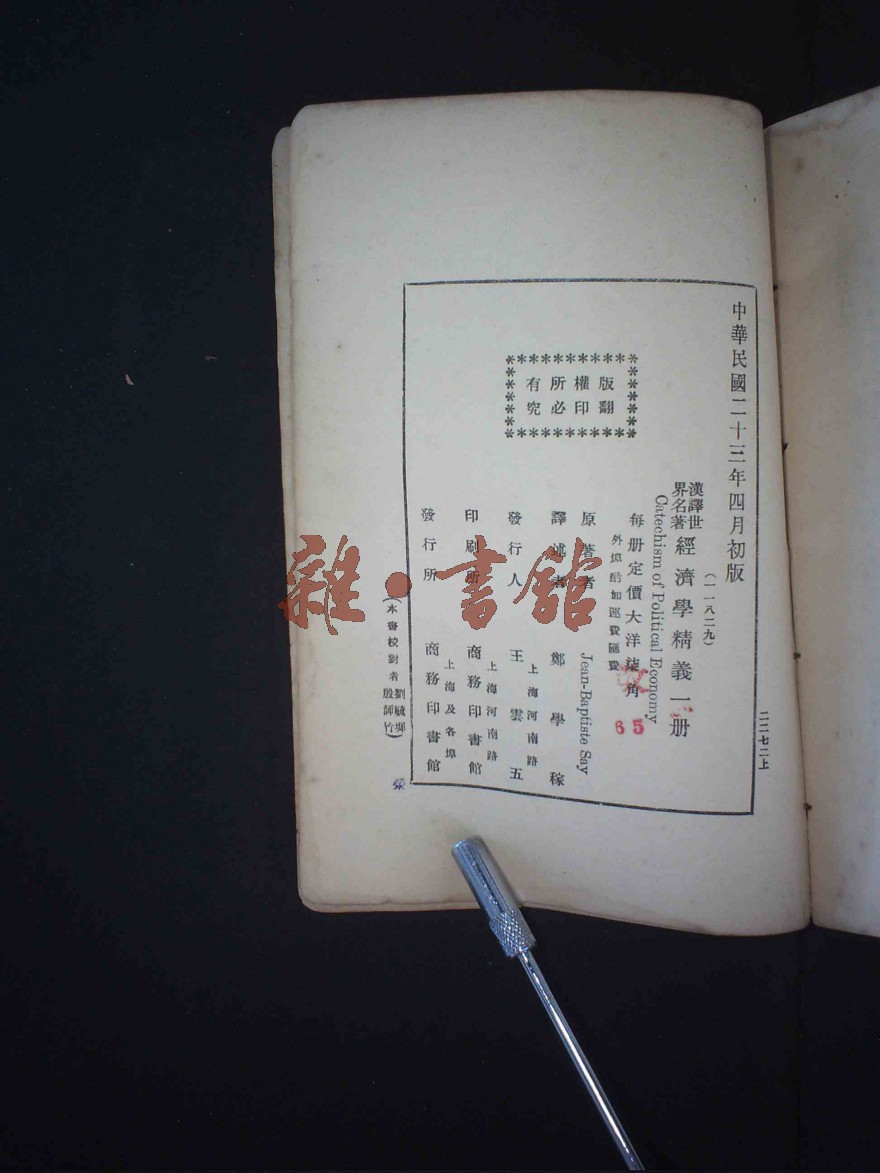 二二七二上
中華民國二十三年四月初版
(一一八二九)
漢譯世
界名著
經濟學精義一册
Catechism of Political Economy
每册定價大洋柒角
65
外埠酌加運費匯費
原著者 Jean-Baptiste Say
譯述者 鄭學稼
上海河南路
發行人 王雲五
上海河南路
印刷所 商務印書館
上海及各埠
發行所 商務印書館
版權所有
翻印必究
(本書校對者劉毓
殷師竹)
雜·書館